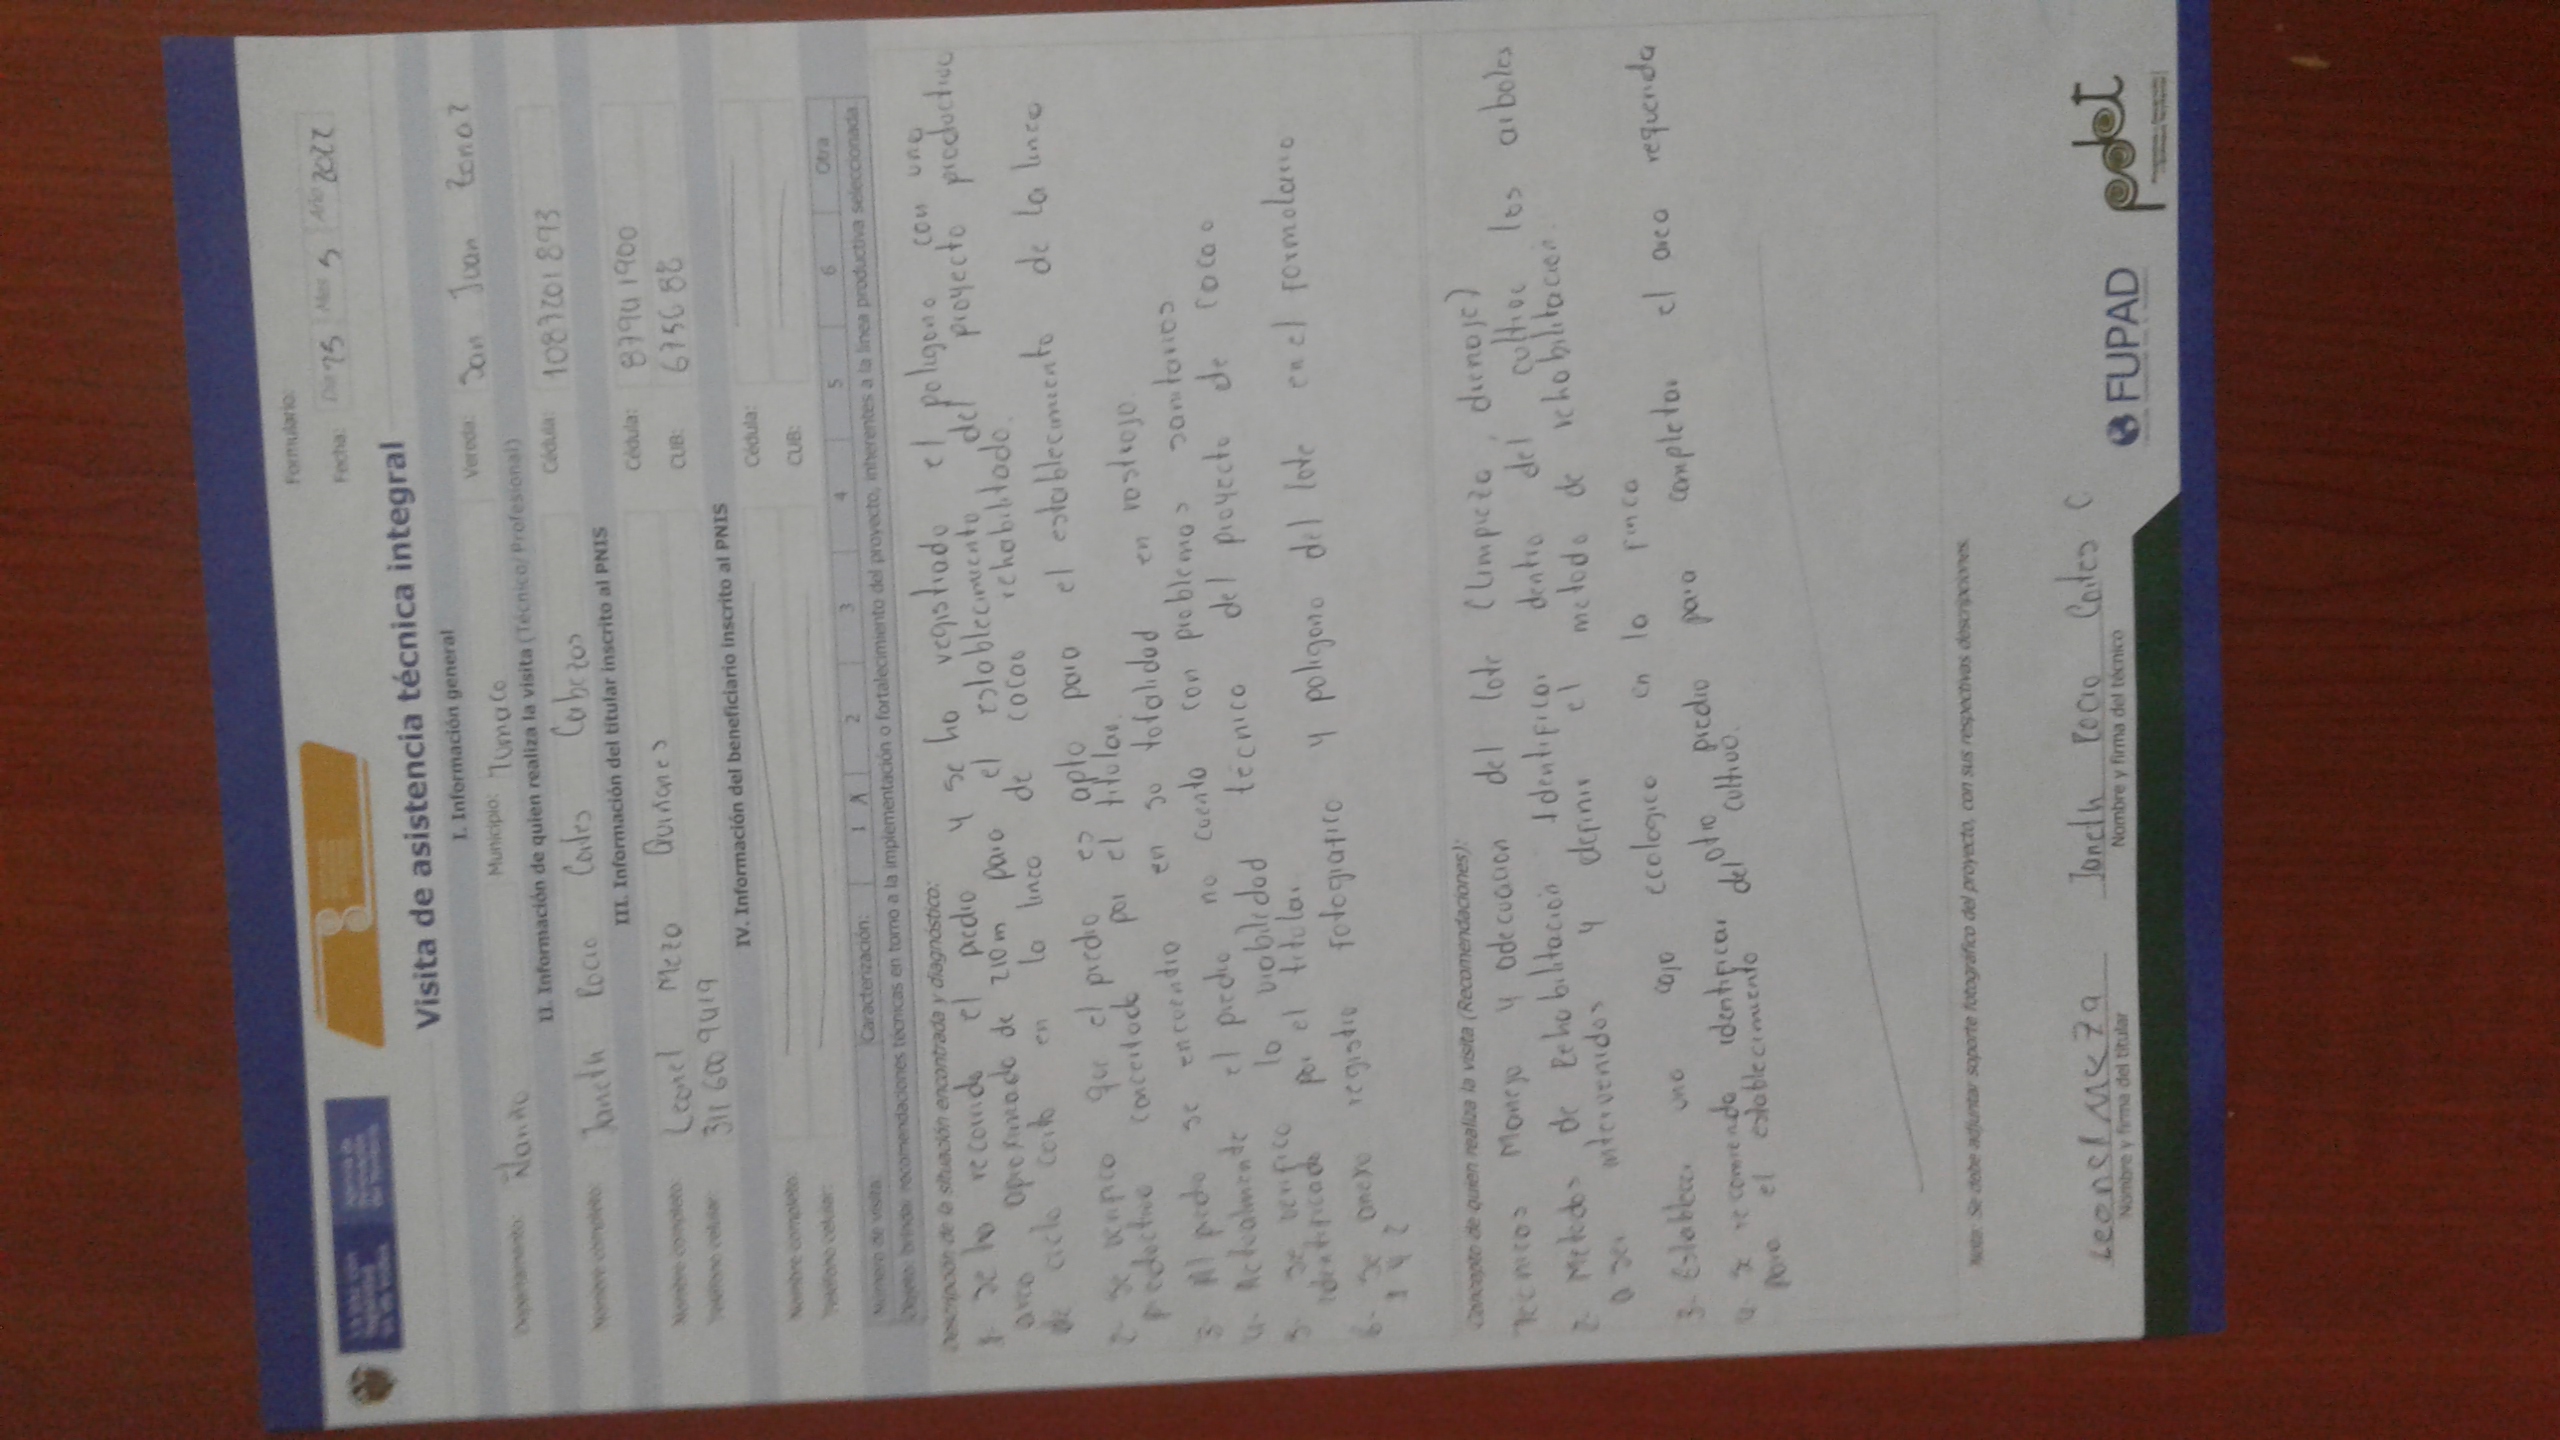 Formulario:
Fecha: Día 25 Mes 5 Año 2022
Visita de asistencia técnica integral
I. Información general
Departamento: Nariño Municipio: Tumaco Vereda: San Juan
II. Información de quien realiza la visita (Técnico/Profesional)
Nombre completo: Janeth Rocio Cortes Cabezas Cédula: 1087201893
III. Información del titular inscrito al PNIS
Nombre completo: Leonel Meza Quiñones Cédula: 87941900
Teléfono celular: 3116009419 CUB: 675688
IV. Información del beneficiario inscrito al PNIS
Nombre completo: Cédula:
Teléfono celular: CUB:
Número de visita: Caracterización: 1 X 2 3 4 5 6 Otra
Objeto: brindar recomendaciones técnicas en torno a la implementación o fortalecimiento del proyecto, inherentes a la línea productiva seleccionada.
Descripción de la situación encontrada y diagnóstico:
1- se ha recorrido el predio y se ha registrado el poligono con una
area aproximada de 210m para el establecimiento del proyecto productivo
de ciclo corto en la linea de cacao rehabilitado.
2- se verifico que el predio es apto para el establecimiento de la linea
productiva concertada por el titular.
3- Al predio se encuentra en su totalidad en rastrojo.
4- Actualmente el predio no cuenta con problemas sanitarios
5- se verifico la viabilidad técnica del proyecto de cacao
identificado por el titular.
6- se anexa registro fotografico y poligono del lote en el formolario
1 y 2
Concepto de quien realiza la visita (Recomendaciones):
Tecnicas Manejo y adecuacion del lote (limpieza, drenaje)
2- Metodos de Rehabilitación Identificar dentro del cultivo los arboles
a ser intervenidos y definir el metodo de rehabilitación.
3- Establecer una caja ecologica en la finca
4- se recomienda identificar otro predio para completar el area requerida
para el establecimiento del cultivo.
Nota: Se debe adjuntar soporte fotográfico del proyecto, con sus respectivas descripciones.
Leonel Meza Janeth Rocio Cortes C
Nombre y firma del titular Nombre y firma del técnico
FUPAD pdet